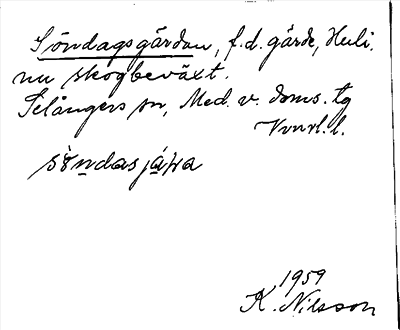 Söndagsgärdan, f.d. gärde, Huli.
nu skogbeväxt.
Selångers sn, Med. v. doms. tg
Vvnrl. l.
söndasjära
1959
K. Nilsson